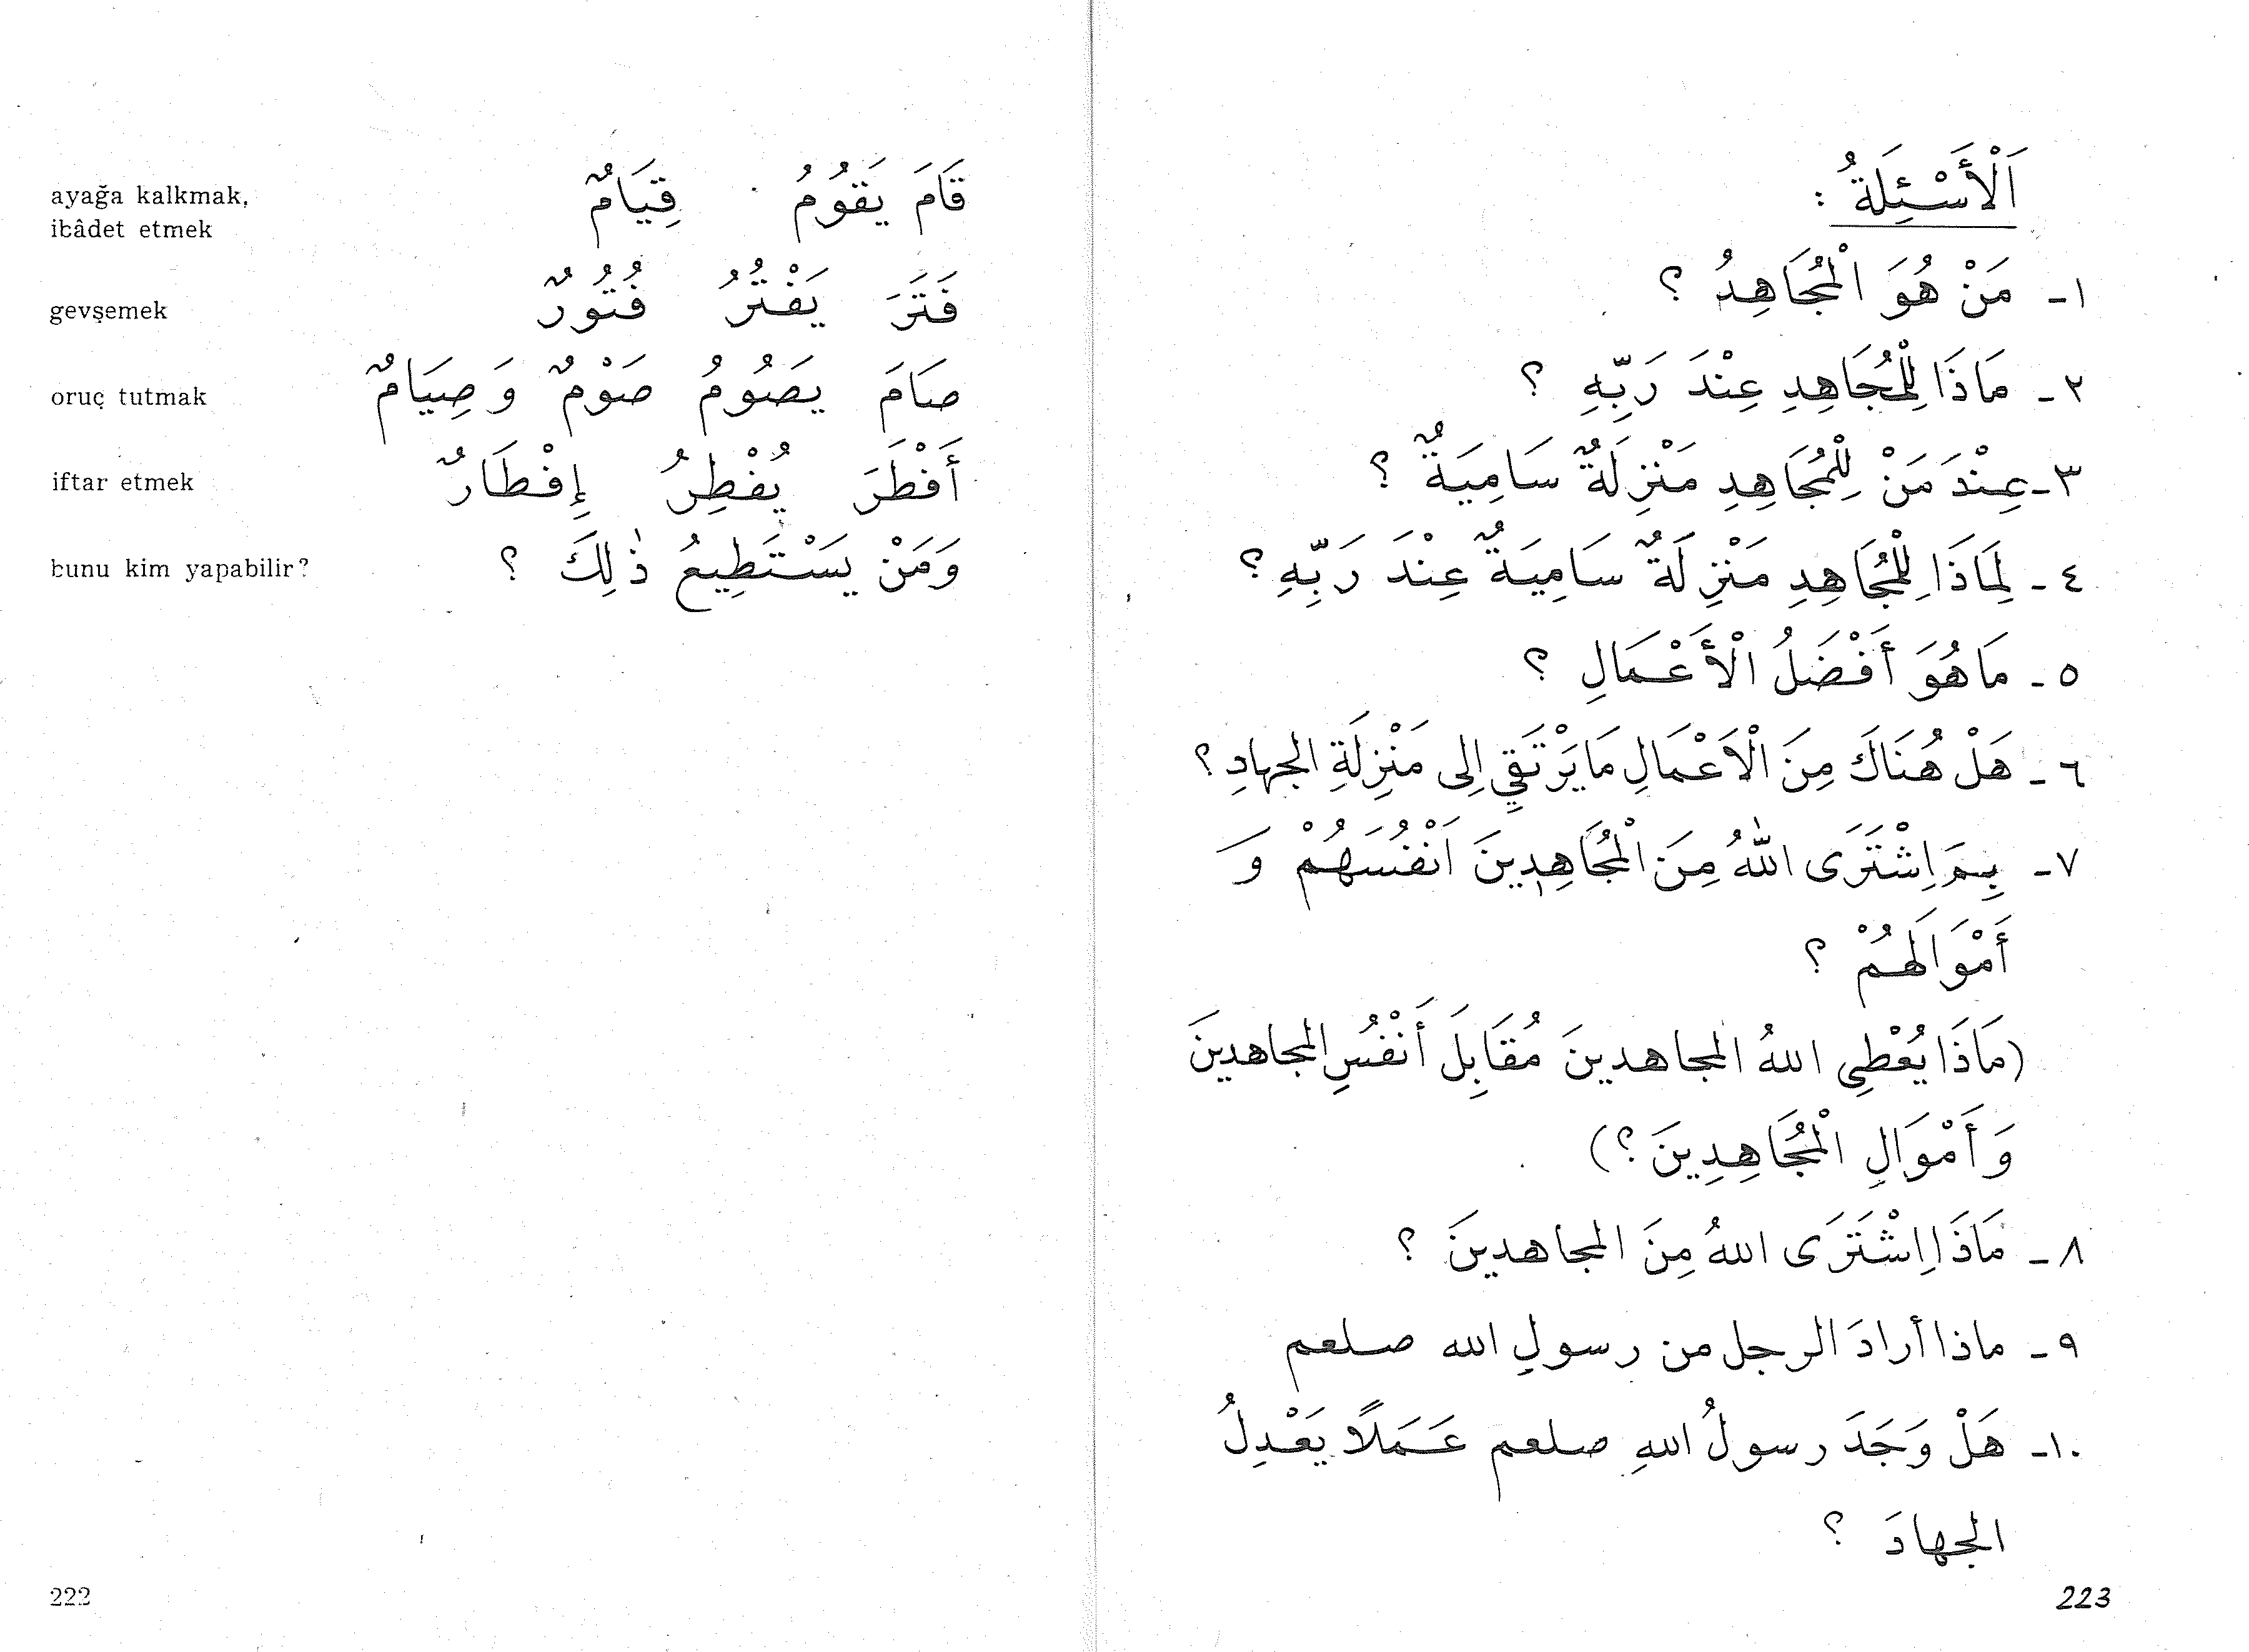 ayağa kalkmak, قَامَ يَقُومُ قِيَامٌ
ibâdet etmek
gevşemek فَتَرَ يَفْتُرُ فُتُورٌ
oruç tutmak صَامَ يَصُومُ صَوْمٌ وَصِيَامٌ
iftar etmek أَفْطَرَ يُفْطِرُ إِفْطَارٌ
bunu kim yapabilir? وَمَنْ يَسْتَطِيعُ ذٰلِكَ ؟
222
اَلْأَسْئِلَةُ :
١- مَنْ هُوَ الْمُجَاهِدُ ؟
٢- مَاذَا لِلْمُجَاهِدِ عِنْدَ رَبِّهِ ؟
٣- عِنْدَ مَنْ لِلْمُجَاهِدِ مَنْزِلَةٌ سَامِيَةٌ ؟
٤- لِمَاذَا لِلْمُجَاهِدِ مَنْزِلَةٌ سَامِيَةٌ عِنْدَ رَبِّهِ ؟
٥- مَا هُوَ أَفْضَلُ الْأَعْمَالِ ؟
٦- هَلْ هُنَاكَ مِنَ الْاَعْمَالِ مَا يَرْتَقِي اِلى مَنْزِلَةِ الجهادِ ؟
٧- بِمَ اِشْتَرَى اللّٰهُ مِنَ الْمُجَاهِدِينَ اَنْفُسَهُمْ وَ
أَمْوَالَهُمْ ؟
(مَاذَا يُعْطِى اللهُ المجاهدينَ مُقَابِلَ أَنْفُسِ المجاهدينَ
وَأَمْوَالِ الْمُجَاهِدِينَ ؟)
٨- مَاذَا اِشْتَرَى اللهُ مِنَ المجاهدينَ ؟
٩- ماذا أرادَ الرجل من رسولِ الله صلعم
١٠- هَلْ وَجَدَ رسولُ اللهِ صلعم عَمَلًا يَعْدِلُ
الجهادَ ؟
223